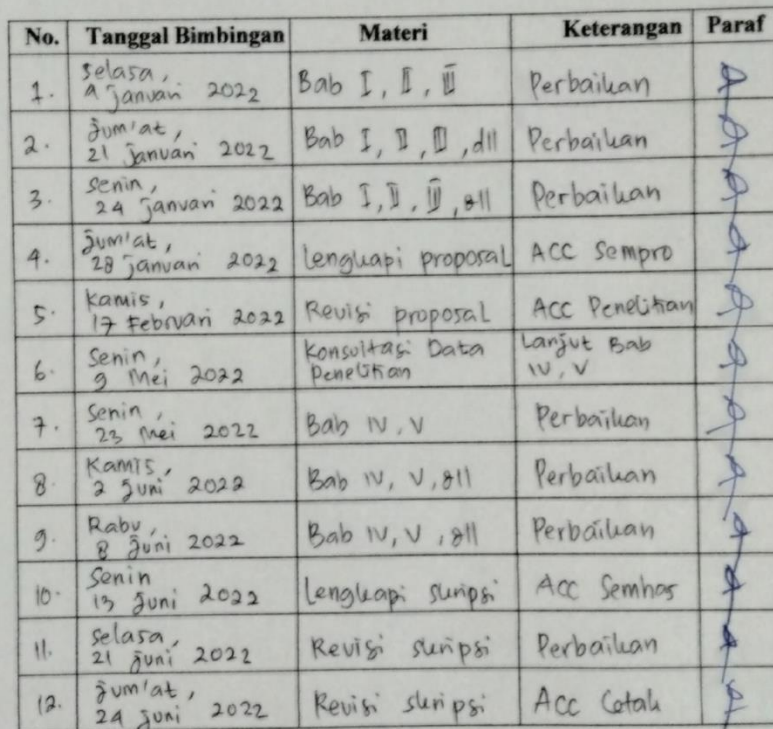 No. Tanggal Bimbingan Materi Keterangan Paraf
1. Selasa, 4 Januari 2022 Bab I, II, III Perbaikan
2. Jum'at, 21 Januari 2022 Bab I, II, III, dll Perbaikan
3. Senin, 24 Januari 2022 Bab I, II, III, dll Perbaikan
4. Jum'at, 28 Januari 2022 Lengkapi proposal ACC Sempro
5. Kamis, 17 Februari 2022 Revisi proposal ACC Penelitian
6. Senin, 9 Mei 2022 Konsultasi Data Penelitian Lanjut Bab IV, V
7. Senin, 23 Mei 2022 Bab IV, V Perbaikan
8. Kamis, 2 Juni 2022 Bab IV, V, dll Perbaikan
9. Rabu, 8 Juni 2022 Bab IV, V, dll Perbaikan
10. Senin 13 Juni 2022 Lengkapi skripsi ACC Semhas
11. Selasa, 21 Juni 2022 Revisi skripsi Perbaikan
12. Jum'at, 24 Juni 2022 Revisi skripsi ACC Cetak